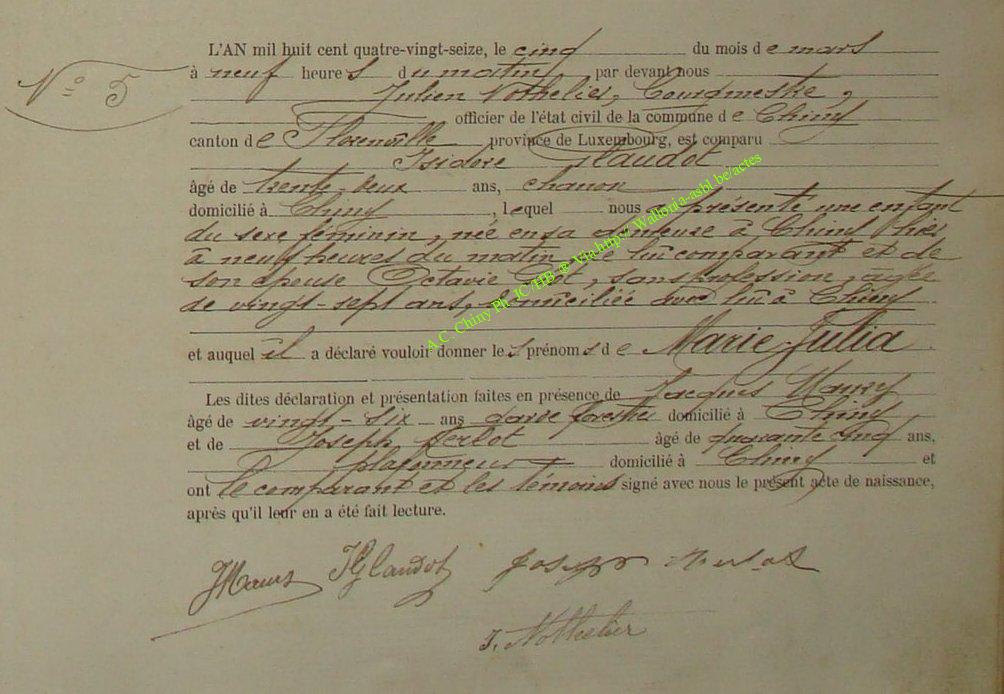 N° 5
L'AN mil huit cent quatre-vingt-seize, le cinq du mois de mars
à neuf heures du matin par devant nous
Julien Nothelier, Bourgmestre,
officier de l'état civil de la commune de Chiny
canton de Florenville province de Luxembourg, est comparu
Isidore Glaudot
âgé de trente-deux ans,
domicilié à Chiny, lequel nous a présenté une enfant
du sexe féminin, née en sa demeure à Chiny hier
à neuf heures du matin, de lui comparant et de
son épouse Octavie, sans profession, âgée
de vingt-sept ans, domiciliée avec lui à Chiny
et auquel il a déclaré vouloir donner les prénoms de Marie-Julia
Les dites déclaration et présentation faites en présence de Jacques Maury
âgé de vingt-six ans garde forestier domicilié à Chiny
et de Joseph Herbot âgé de quarante cinq ans,
plafonneur domicilié à Chiny et
ont le comparant et les témoins signé avec nous le présent acte de naissance,
après qu'il leur en a été fait lecture.
JMaury IGlaudot Joseph
J. Nothelier
A.C. Chiny Ph JC/HB ® Via-http:// Wallonia-asbl.be/actes